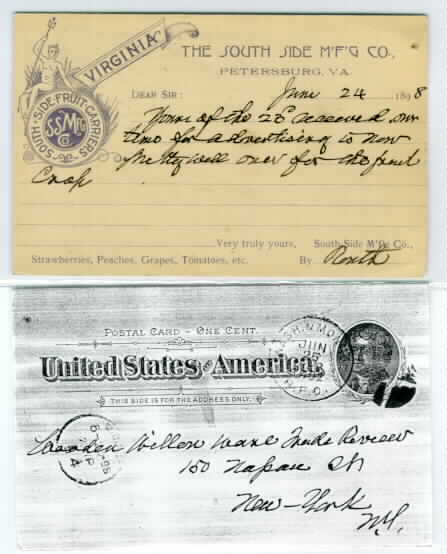 VIRGINIA
SOUTH SIDE FRUIT CARRIERS
S.S.M'FG Co
THE SOUTH SIDE M'F'G CO.,
PETERSBURG, VA.
DEAR SIR: June 24 1898
Yours of the 23 received, our
time for advertising is now
pretty well over for the fruit
Crop
Very truly yours, South Side M'f'g Co.,
Strawberries, Peaches, Grapes, Tomatoes, etc. By
POSTAL CARD - ONE CENT.
United States of America.
THIS SIDE IS FOR THE ADDRESS ONLY.
JUN
R.P.O.
Wooden Willow Ware Trade Review
150 Nassau St
New-York
N.Y.